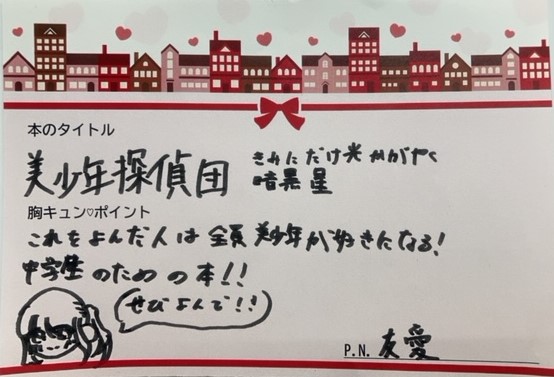 本のタイトル
美少年探偵団 きみにだけ光かがやく
暗黒星
胸キュン♡ポイント
これをよんだ人は全員美少年が好きになる!
中学生のための本!!
ぜひよんで!!
P.N. 友愛